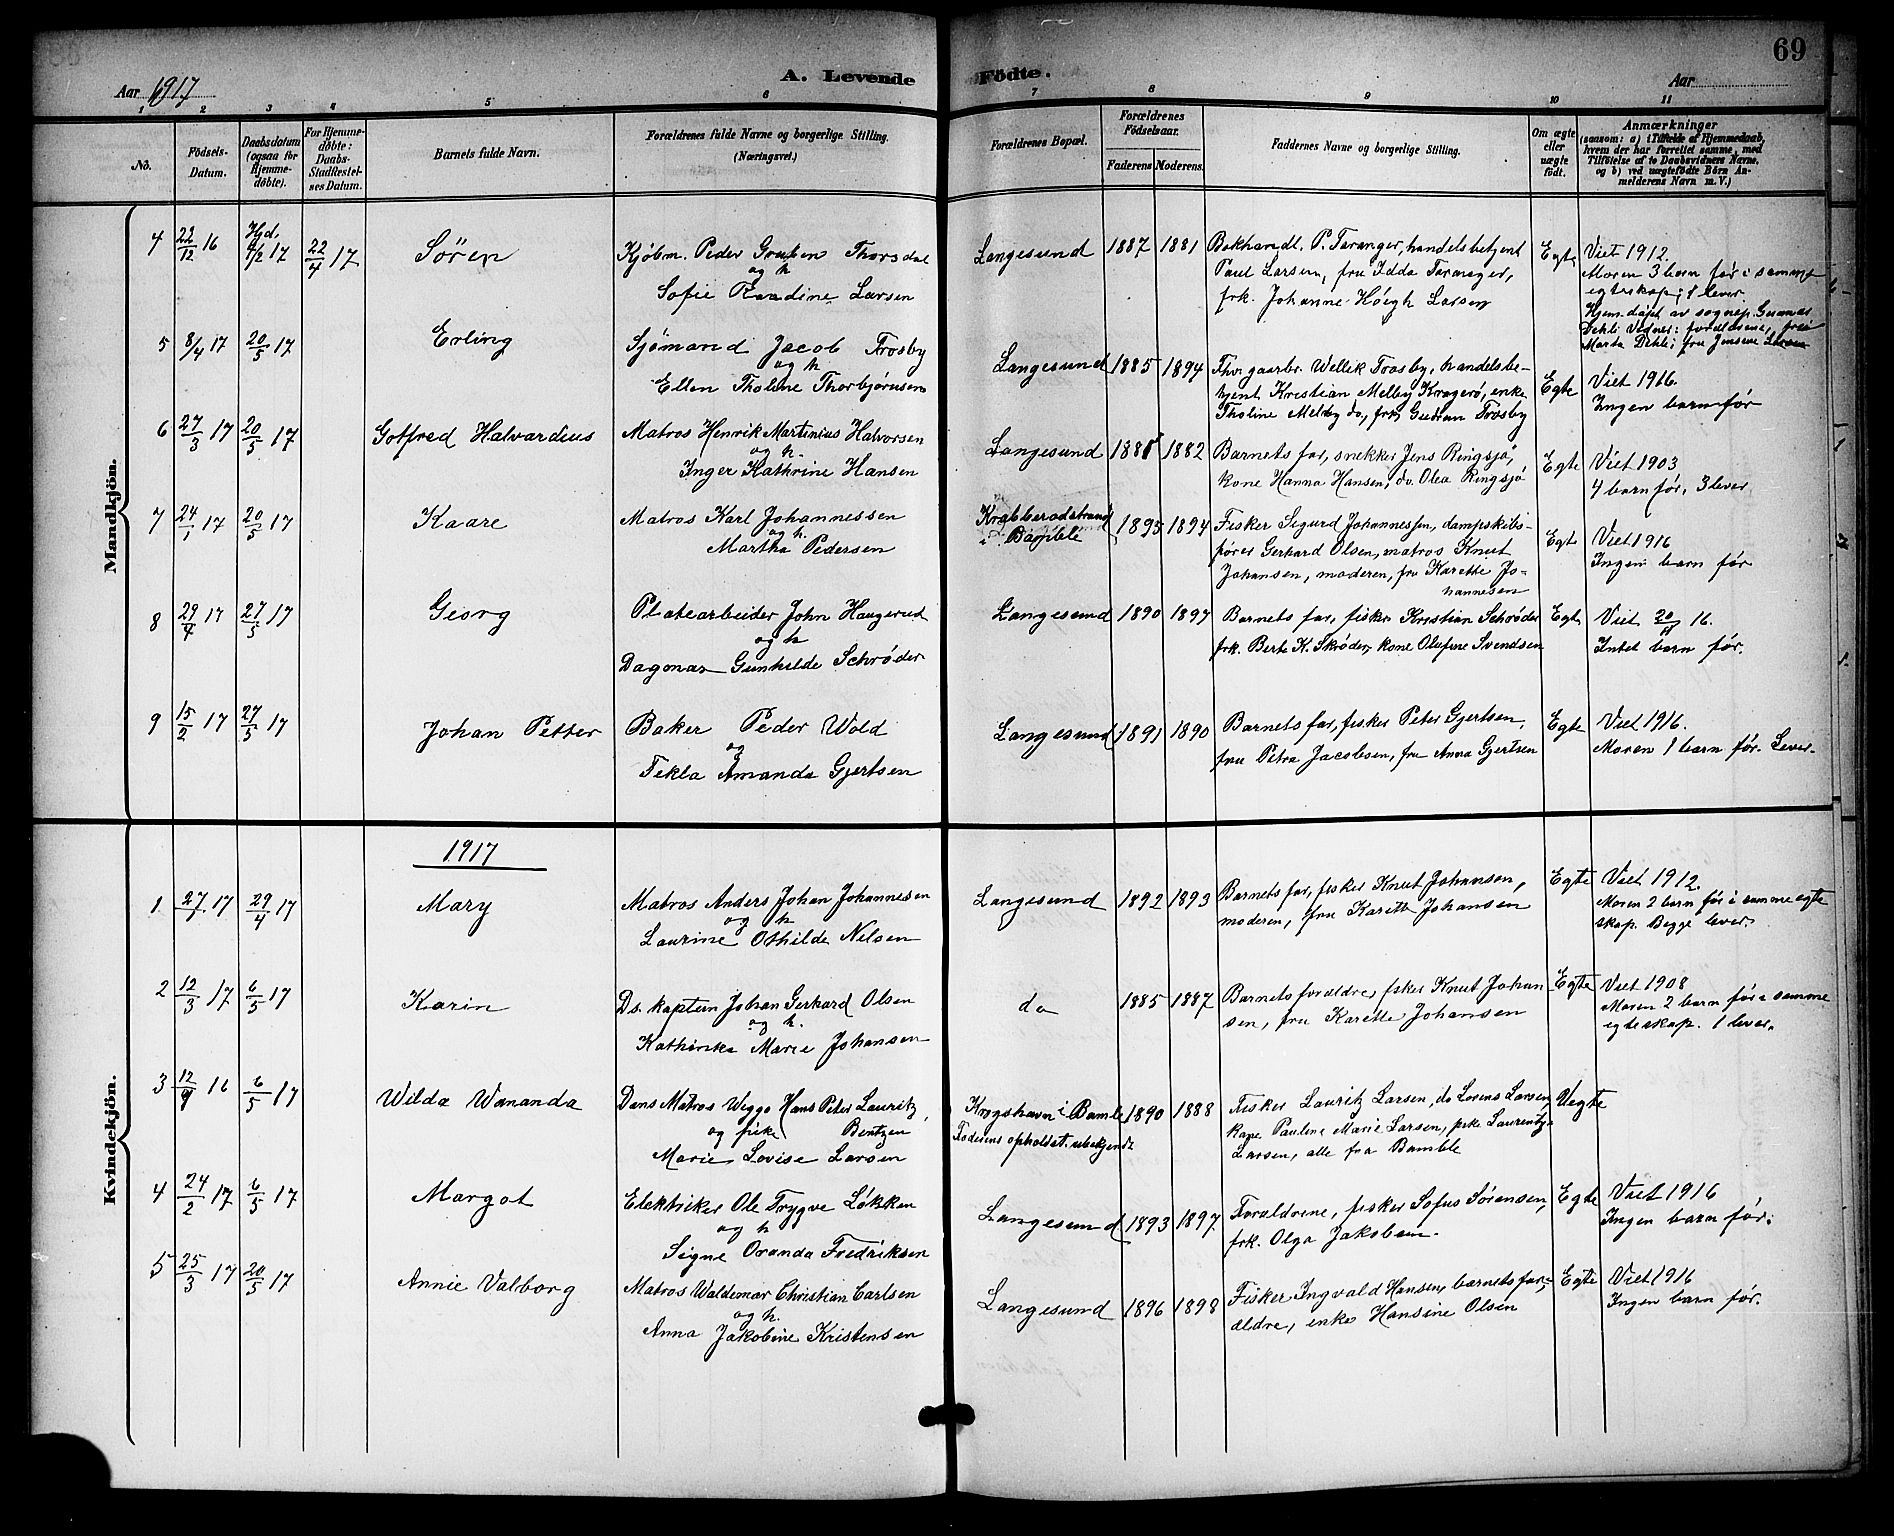 69
A. Levende Födte.
Aar 1917
Aar
1 2 3 4 5 6 7 8 9 10 11
No.
Födsels-Datum.
Daabsdatum (ogsaa for Hjemme-döbte).
For Hjemme-döbte: Daabs-Stadfæstel-ses Datum.
Barnets fulde Navn.
Forældrenes fulde Navne og borgerlige Stilling.
(Næringsvei.)
Forældrenes Bopæl.
Forældrenes Födselsaar.
Faderens Moderens.
Faddernes Navne og borgerlige Stilling.
Om ægte eller uægte födt.
Anmærkninger
(saasom: a) i Tilfælde af Hjemmedaab,
hvem der har forrettet samme, med
Tilföielse af to Daabsvidners Navne,
og b) ved uægtefödte Börn An-
melderens Navn m. V.)
Mandkjön.
4 22/12 16 Hjd. 1/2 17 22/4 17 Sören
Kjöbm. Peder Gruben Thorsdal
og h
Sofie Raadine Larsen
Langesund 1887 1881
Bokhandl. P. Taranger, handelsbetjent
Paul Larsen, fru Idda Taranger,
frk. Johanne Höegh Larsen
Egte
Viet 1912.
Moren 3 barn før i samme
egteskap; 1 lever.
Hjem.døpt av sognep. Gunnar
Dehli Vidner: forældrene, frøi
Marta Dehli; fru Jensine
5 8/4 17 20/5 17 Erling
Sjömand Jacob Trosby
og h
Ellen Tholine Thorbjørnsen
Langesund 1885 1894
Fhv. gaarbr. Wellik Trosby, handelsbe-
tjent Kristian Melby Kragerö, enke
Tholine Melby do., frk Gudrun Trosby
Egte
Viet 1916.
Ingen barn før
6 27/3 17 20/5 17 Gotfred Halvardius
Matros Henrik Martinius Halvorsen
og h.
Inger Kathrine Hansen
Langesund 1881 1882
Barnets far, snekker Jens Ringsjö,
kone Hanna Hansen, do Olea Ringsjö
Egte
Viet 1903
4 barn før, 3 lever
7 24/1 17 20/5 17 Kaare
Matros Karl Johannessen
og h.
Martha Pedersen
Krabberodstrand
i Bamble
1895 1894
Fisker Sigurd Johannessen, dampskibs-
fører Gerhard Olsen, matros Knut
Johansen, moderen, fru Karette Jo-
hannesen
Egte
Viet 1916
Ingen barn før
8 29/4 17 27/5 17 Georg
Platearbeider John Haugerud
og h
Dagmar Gunhilde Schrøder
Langesund 1890 1897
Barnets far, fisker Kristian Schrøder
frk. Berte K. Skrøder, kone Olufine Svendsen
Egte
Viet 20/11 16.
Intet barn før.
9 15/2 17 27/5 17 Johan Petter
Baker Peder Wold
og
Tekla Amanda Gjertsen
Langesund 1891 1890
Barnets far, fisker Peter Gjertsen,
fru Petra Jacobsen, fru Anna Gjertsen
Egte
Viet 1916.
Moren 1 barn før. Lever.
Kvindekjön.
1917
1 27/1 17 29/4 17 Mary
Matros Anders Johan Johannesen
og h
Laurine Othilde Nilsen
Langesund 1892 1893
Barnets far, fisker Knut Johansen,
moderen, fru Karette Johansen
Egte
Viet 1912.
Moren 2 barn før i samme egte
skap. Begge lever.
2 12/3 17 6/5 17 Karin
Ds. kaptein Johan Gerhard Olsen
og h.
Kathinka Marie Johansen
do 1885 1887
Barnets forældre, fisker Knut Johan
sen, fru Karette Johansen
Egte
Viet 1908
Moren 2 barn før i samme
egteskap. 1 lever.
3 12/9 16 6/5 17 Wilda Wananda
Dans Matros Weggo Hans Peter Lauritz
og pike Bentzen
Marie Lovise Larsen
Krogshavn i Bamle
Faderens opholdst. ubekjendt
1890 1888
Fisker Lauritz Larsen, do Lorens Larsen
kone Pauline Marie Larsen, pike
Larsen, alle fra Bamble
Uegte
4 24/2 17 6/5 17 Margot
Elektriker Ole Trygve Løkken
og h
Signe Oranda Fredriksen
Langesund 1893 1897
Forældrene, fisker Sofus Sörensen,
frk. Olga Jakobsen.
Egte
Viet 1916
Ingen barn før.
5 25/3 17 20/5 17 Annie Valborg
Matros Waldemar Christian Carlsen
og h.
Anna Jakobine Kristensen
Langesund 1896 1898
Fisker Ingvald Hansen, barnets for-
ældre, enke Hansine Olsen
Egte
Viet 1916
Ingen barn før.